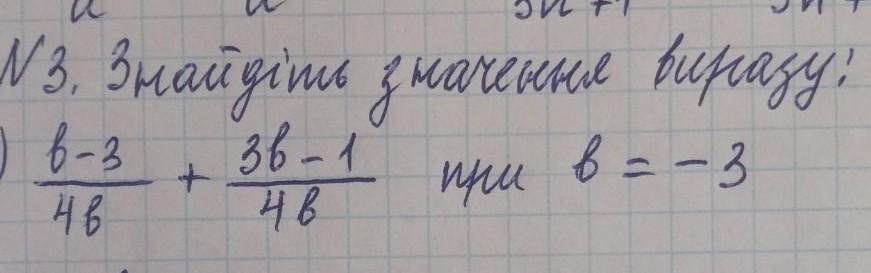 N3. Знайдіть значення виразу:
) в-3/4в + 3в-1/4в при в = -3